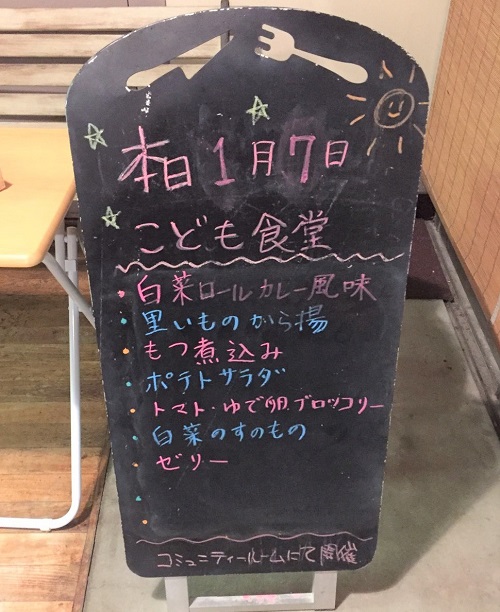 本日1月7日
こども食堂
白菜ロールカレー風味
黒いものから揚
もつ煮込み
ポテトサラダ
トマト・ゆで卵ブロッコリー
白菜のすのもの
ゼリー
コミュニティールームにて開催